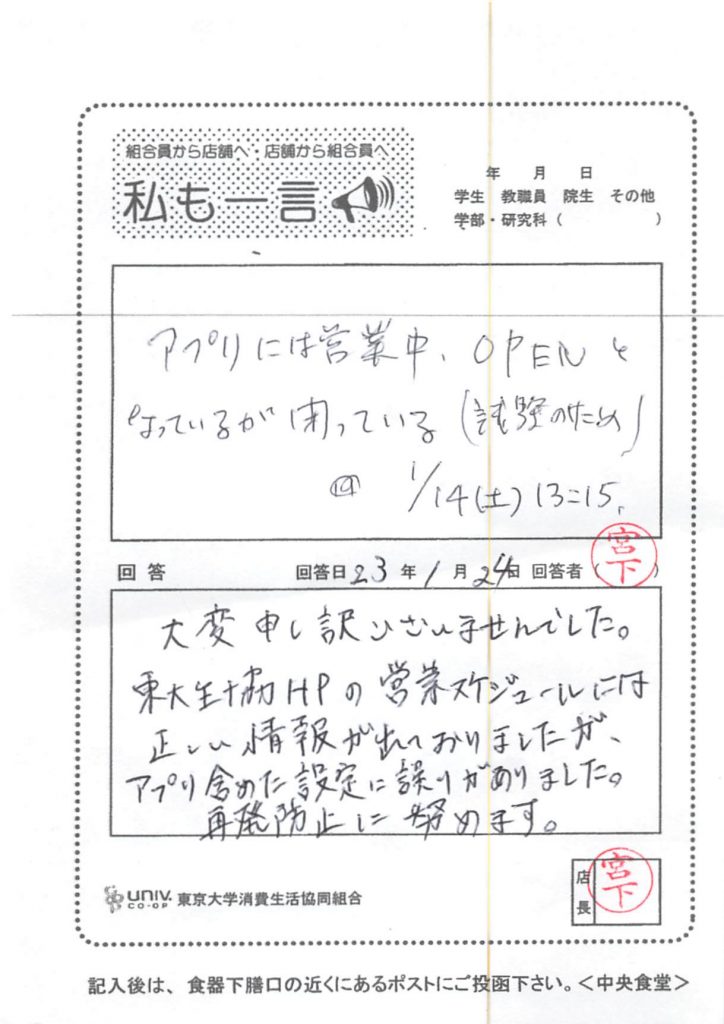 組合員から店舗へ・店舗から組合員へ
私も一言
年 月 日
学生 教職員 院生 その他
学部・研究科( )
アプリには営業中、OPENと
なっているが閉っている(試験のため)
1/14(土)13:15.
回答 回答日23年1月24日 回答者(宮下)
大変申し訳ございませんでした。
東大生協HPの営業スケジュールには
正しい情報が出ておりましたが、
アプリ含めた設定に誤りがありました。
再発防止に努めます。
UNIV. CO-OP 東京大学消費生活協同組合
店長 宮下
記入後は、食器下膳口の近くにあるポストにご投函下さい。<中央食堂>